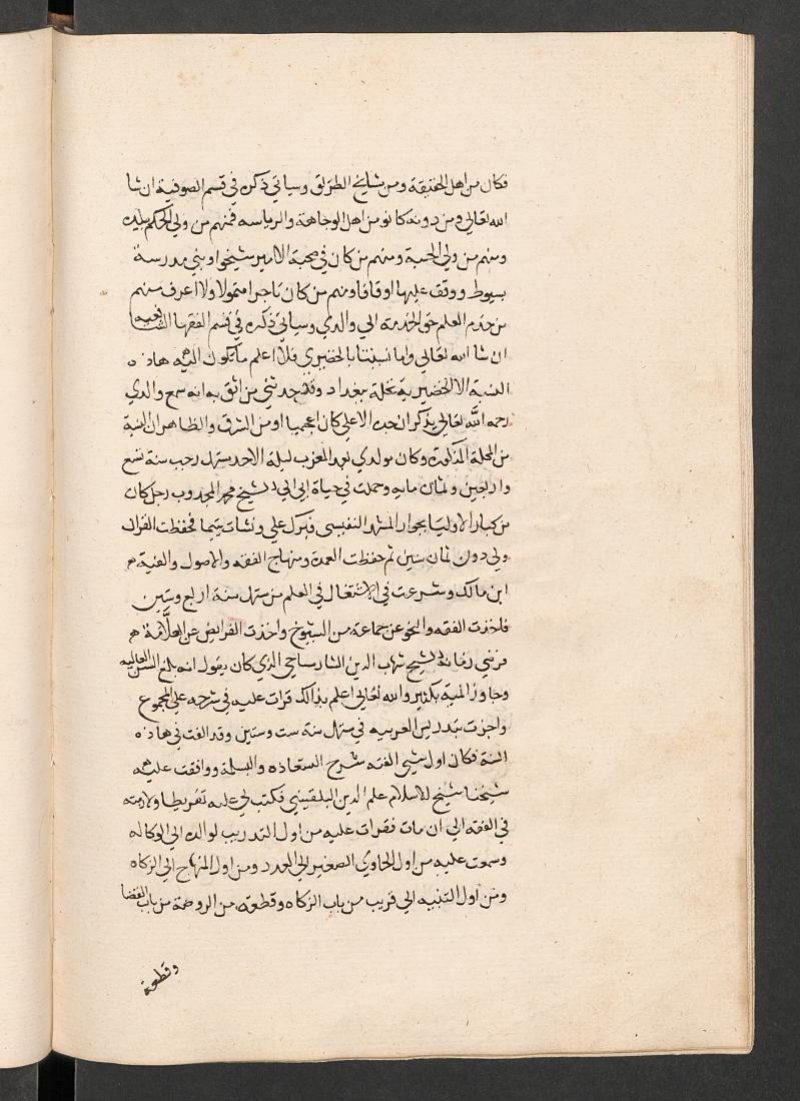 فكان من اهل الحقيقة ومن مشايخ الطريق وسياتي ذكره في قسم الصوفية ان شا
الله تعالي ومن دونه كانو من اهل الوجاهة والرياسه فمنهم من ولي الحكم ببلده
ومنهم من ولي الحسبة ومنهم من كان في صحبة الامير شيخوا وبني مدرسة
بسيوط ووقف عليها اوقافا ومنهم من كان تاجرا متمولا ولا اعرف منهم
من خدم العلم حق الخدمة الي والدي وسياتي ذكره في قسم الفقها الشافعيه
ان شا الله تعالي واما نسبتنا بالخضيري فلا اعلم ما يكون اليه هاذه
النسبة الا الخضيرية محلة ببغداد وقد حدثني من اثق به انه سمع والدي
رحمه الله تعالي يذكر ان جده الاعلي كان اعجميا او من الشرق والظاهر ان النسبة
من المحلة المذكورة وكان مولدي بعد المغرب ليلة الاحد مستهل رجب سنة تسع
واربعين وثمان مايه وحملت في حياة ابي الي الشيخ محمد المجدوب رجل كان
من كبار الاوليا بجوار المشهد النفيسي فبرك علي ونشات يتيما فحفظت القران
ولي دون ثمان سنين ثم حفظت العمدة ومنهاج الفقه والاصول والفية
ابن مالك وشرعت في الاشتغال في العلم من مستهل سنة اربع وستين
فاخذت الفقه والنحو عن جماعة من الشيوخ واخذت الفرايض عن العلّامة
فرضي زمانه الشيخ شهاب الدين الشارمساحي الذي كان يقول انه بلغ السن العاليه
وجاوز المية بكثير والله تعالي اعلم بذالك قرات عليه في شرحه علي المجموع
واجزت بتدريس العربيه في مستهل سنة ست وستين وقد الفت في هاذه
السنة فكان اول شيي الفته شرح الستعاذه والبسملة ووافقت عليه
شيخنا شيخ الاسلام علم الدين البلقيني فكتب لي عليه تقريظا ولازمته
في الفقه الي ان مات فقرات عليه من اول التدريب لوالده الي الوكاله
وسمعت عليه من اول الحاوي الصغير الي العدد ومن اول المنهاج الي الزكاه
ومن اول التنبيه الي قريب من باب الزكاه وقطعة من الروضة من باب القضا
وقطعة